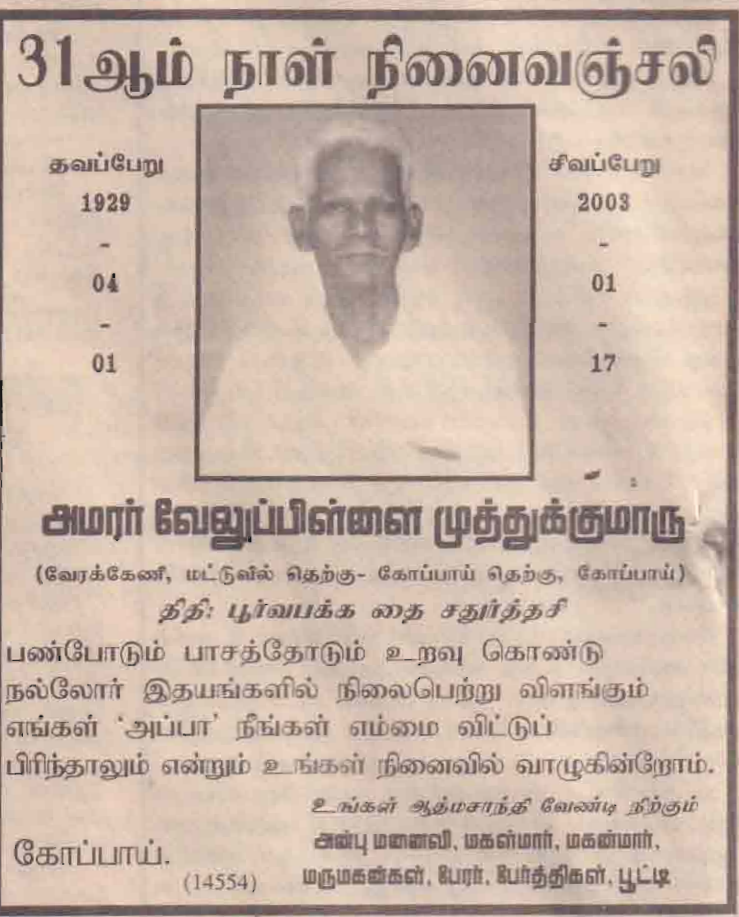 31ஆம் நாள் நினைவஞ்சலி
தவப்பேறு
1929
-
04
-
01
சிவப்பேறு
2003
-
01
-
17
அமரர் வேலுப்பிள்ளை முத்துக்குமாரு
(வேரக்கேணி, மட்டுவில் தெற்கு- கோப்பாய் தெற்கு, கோப்பாய்)
திதி: பூர்வபக்க தை சதுர்த்தசி
பண்போடும் பாசத்தோடும் உறவு கொண்டு
நல்லோர் இதயங்களில் நிலைபெற்று விளங்கும்
எங்கள் ‘அப்பா’ நீங்கள் எம்மை விட்டுப்
பிரிந்தாலும் என்றும் உங்கள் நினைவில் வாழுகின்றோம்.
உங்கள் ஆத்மசாந்தி வேண்டி நிற்கும்
அன்பு மனைவி, மகள்மார், மகன்மார்,
மருமகன்கள், பேரர், பேர்த்திகள், பூட்டி
கோப்பாய்.
(14554)